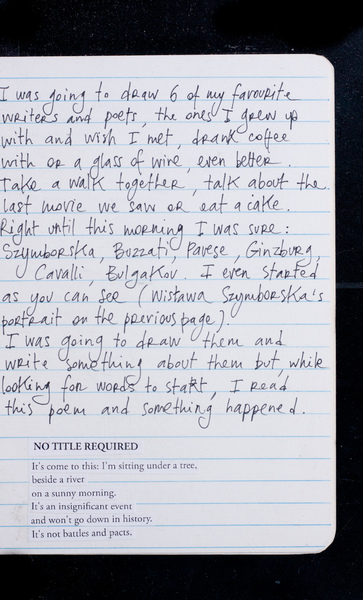 I was going to draw 6 of my favourite
writers and poets, the ones I grew up
with and wish I met, drank coffee
with or a glass of wine, even better.
Take a walk together, talk about the
last movie we saw or eat a cake.
Right until this morning I was sure:
Szymborska, Buzzati, Pavese, Ginzburg,
Cavalli, Bulgakov. I even started
as you can see (Wisława Szymborska's
portrait on the previous page).
I was going to draw them and
write something about them but, while
looking for words to start, I read
this poem and something happened.
NO TITLE REQUIRED
It's come to this: I'm sitting under a tree,
beside a river
on a sunny morning.
It's an insignificant event
and won't go down in history.
It's not battles and pacts,